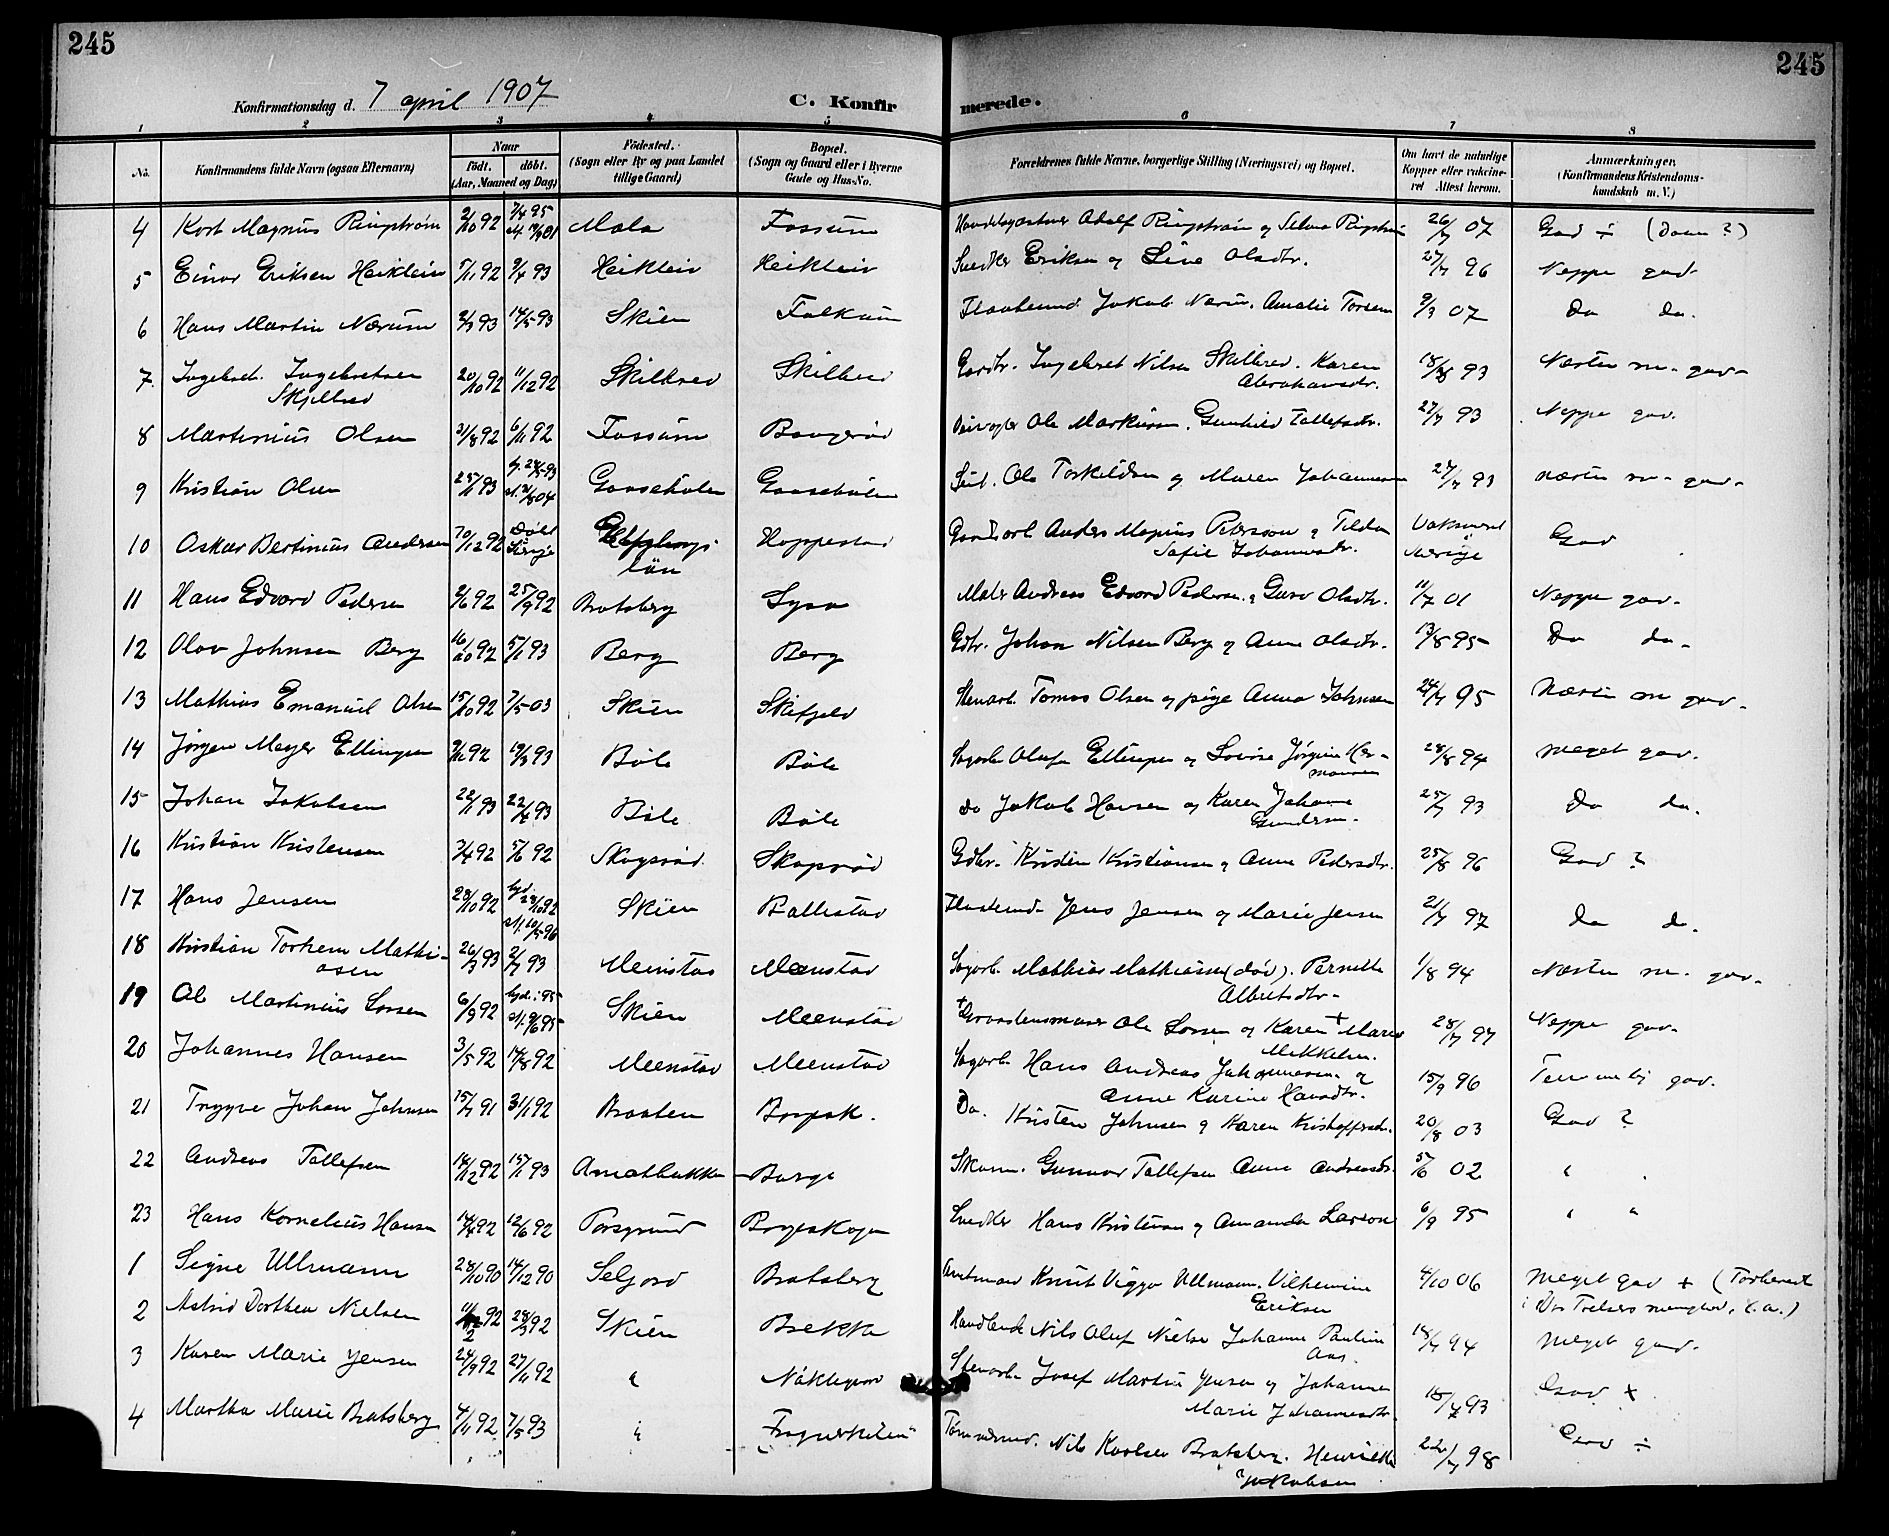 245
245
Konfirmationsdag d. 7 april 1907
C. Konfir
merede.
1 2 3 4 5 6 7 8
No.
Konfirmandens fulde Navn (ogsaa Efternavn)
Naar
født. døbt.
(Aar, Maaned og Dag)
Fødested.
(Sogn eller By og paa Landet
tillige Gaard)
Bopæl.
(Sogn og Gaard eller i Byerne
Gade og Hus-No.
Forældrenes fulde Navne, borgerlige Stilling (Næringsvei) og Bopæl.
Om havt de naturlige
Kopper eller vakcine-
ret Attest herom.
Anmærkninger.
(Konfirmandens Kristendoms-
kundskab m. V.)
4 Kort Magnus Ringstrøm 2/10 92 7/4 95 Fossum Adolf Ringstrøm og 07 God ÷
5 Einar Eriksen Heikleiv 5/11 92 9/4 93 Heikleiv Heikleiv Snedker Eriksen og Line Olsdtr. 27/7 96 Neppe god
6 Hans Martin Nærum 2/3 93 14/5 93 Skien Falkum Jakob Nærum. Amalie Torsen 9/3 07 Do do.
7. Ingebret. Ingebretsen
Skjelbred 20/10 92 11/12 92 Skilbred Skilbred Gardbr. Ingebret Nilsen Skilbred. Karen
Abrahamsdtr. 93 Næsten m. god
8 Martinius Olsen 31/8 92 6/11 92 Fossum Ole Markusen. Gunhild Tollefsdtr. 27/7 93 Neppe god.
9 Kristian Olsen 25/1 93 Gaasehølen Gaasehølen Ole Torkildsen og Maren Johannesen 27/7 93 næsten m. god
10 Oskar Bertinius Andersen 10/12 92 Døbt
Sverige län Hoppestad Anders Magnus Peterson og Tilda
Sofie Johannesdtr. Vaksineret
i Sverige God
11 Hans Edvard Pedersen 2/6 92 25/9 92 Bratsberg Maler Andreas Edvard Pedersen. og Guro Olsdtr. 11/7 01 Neppe god
12 Olav Johnsen Berg 16/10 92 5/1 93 Berg Berg Gdbr. Johan Nilsen Berg og Anne Olsdtr. 13/8 95 Do do
13 Mathias Emanuel Olsen 15/10 92 7/5 03 Skien Skifjeld Stenarb. Tomas Olsen og pige Anna Johnsen 24/7 95 Næsten m god
14 Jørgen Meyer Ellingsen 19/3 93 Bøle Bøle Sagarb. Olaf Ellingsen og Lovise Jørgine Her-
mansen 28/8 94 meget god.
15 Johan Jakobsen 22/1 93 22/4 93 Bøle Bøle Do Jakob Hansen og Karen Johanne
Gundersen. 25/7 93 Do do.
16 Kristian Kristensen 3/4 92 5/6 92 Skogsrød Skogsrød Gdbr. Kristen Kristiansen og Anne Pedersdtr. 25/8 96 God ?
17 Hans Jensen 28/10 92 Skien Ballestad Jens Jensen og Marie Jensen 21/7 97 Do do.
18 Kristian Mathi-
asen 26/3 93 2/7 93 Meenstad Meenstad Sagarb. Mathias Mathiasen (død). Pernille
Albertsdtr. 1/8 94 Næsten m. god.
19 Ole Martinius Larsen 6/9 92 Skien Meenstad Ole Larsen og Karen + Maren
Mikkelsen. 28/7 97 Neppe god.
20 Johannes Hansen 3/5 92 14/8 92 Meenstad Meenstad Sagarb. Hans Andreas Johannesen og
Anne Karine Hansdtr. 15/9 96 Temmelig god.
21 Trygve Johan Johnsen 15/7 91 31/1 92 Braaten Borgesk. Do. Kristen Johnsen og Karen Kristoffersdtr. 20/8 03 God ?
22 Andreas Tollefsen 14/12 92 15/1 93 Borge Skom. Gunnar Tollefsen Anne Andreasdtr. 5/6 02 "
23 Hans Kornelius Hansen 14/4 92 12/6 92 Porsgrund Borgeskogen Snedker Hans Kristensen og Amanda Larson 6/9 95 " "
1 Signe Ullmann 28/10 90 14/12 90 Seljord Bratsberg Amtmand Knut Viggo Ullmann. Vilhelmine
Eriksen 4/10 06 Meget god + (Forberedt
i Vor Frelsers menighed, X.a.)
2 Astrid Dorthea Nielsen 92 28/3 92 Skien Brekke Handlende Nils Oluf Nielsen Johanne Pauline
Aas. 18/7 94 meget god.
3 Karen Marie Jensen 24/9 92 27/11 92 " Stenarb. Josef Martin Jensen og Johanne
Marie Johannesdtr. 18/7 93 God +
4 Martha Marie Bratsberg 4/11 92 7/5 93 " Nils Karlsen Bratsberg. Henriette
Jakobsen 22/7 98 God ÷